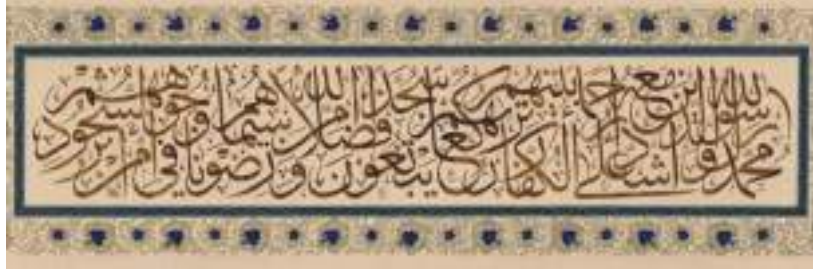 محمد رسول الله والذين معه اشداء على الكفار رحماء بينهم تريهم ركعا سجدا يبتغون فضلا من الله ورضوانا سيماهم في وجوههم من اثر السجود